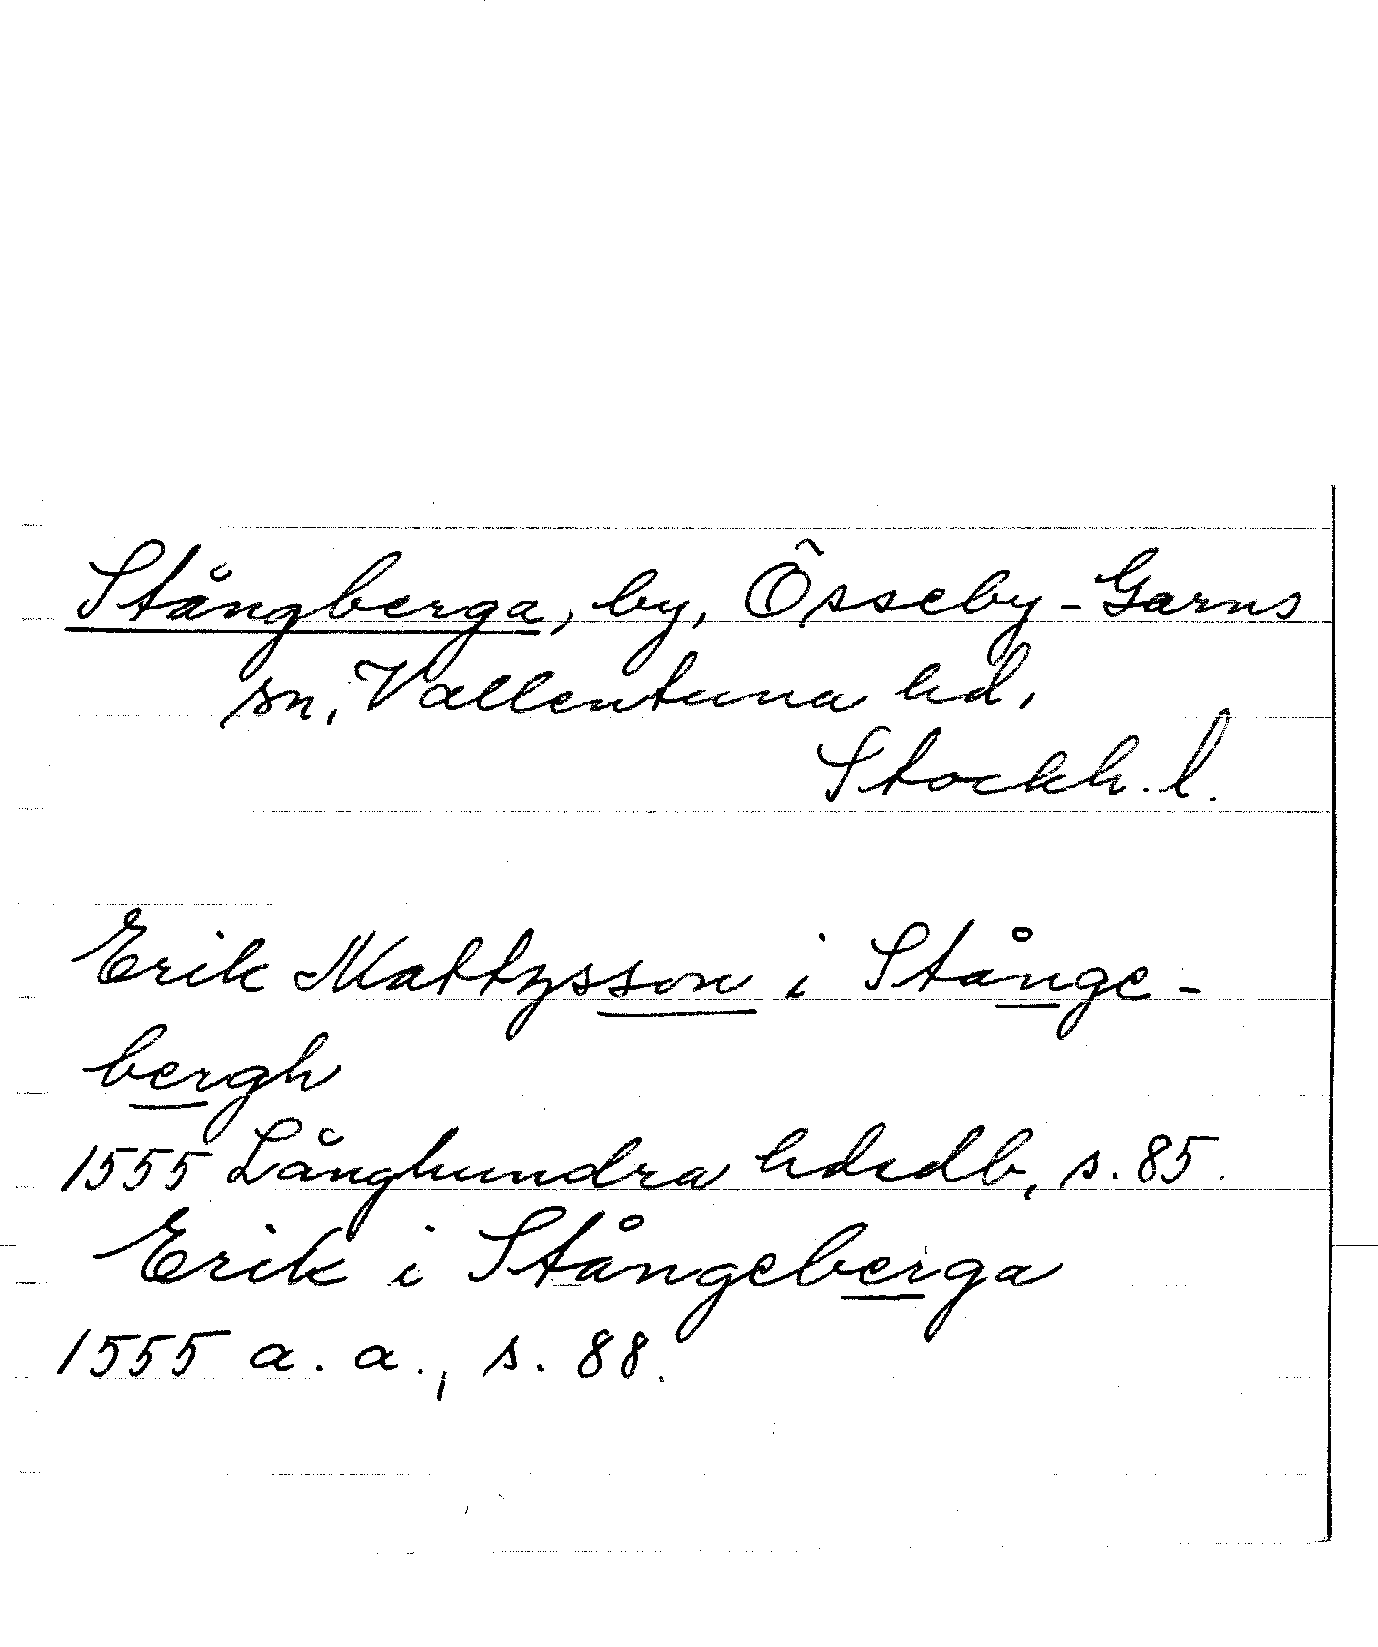 Stångberga, by, Össeby-Garns
sn, Vallentuna hd,
Stockh. l.
Erik Mattysson i Stånge-
bergh
1555 Långhundra hdsdb, s. 85.
Erik i Stångeberga
1555 a. a., s. 88.